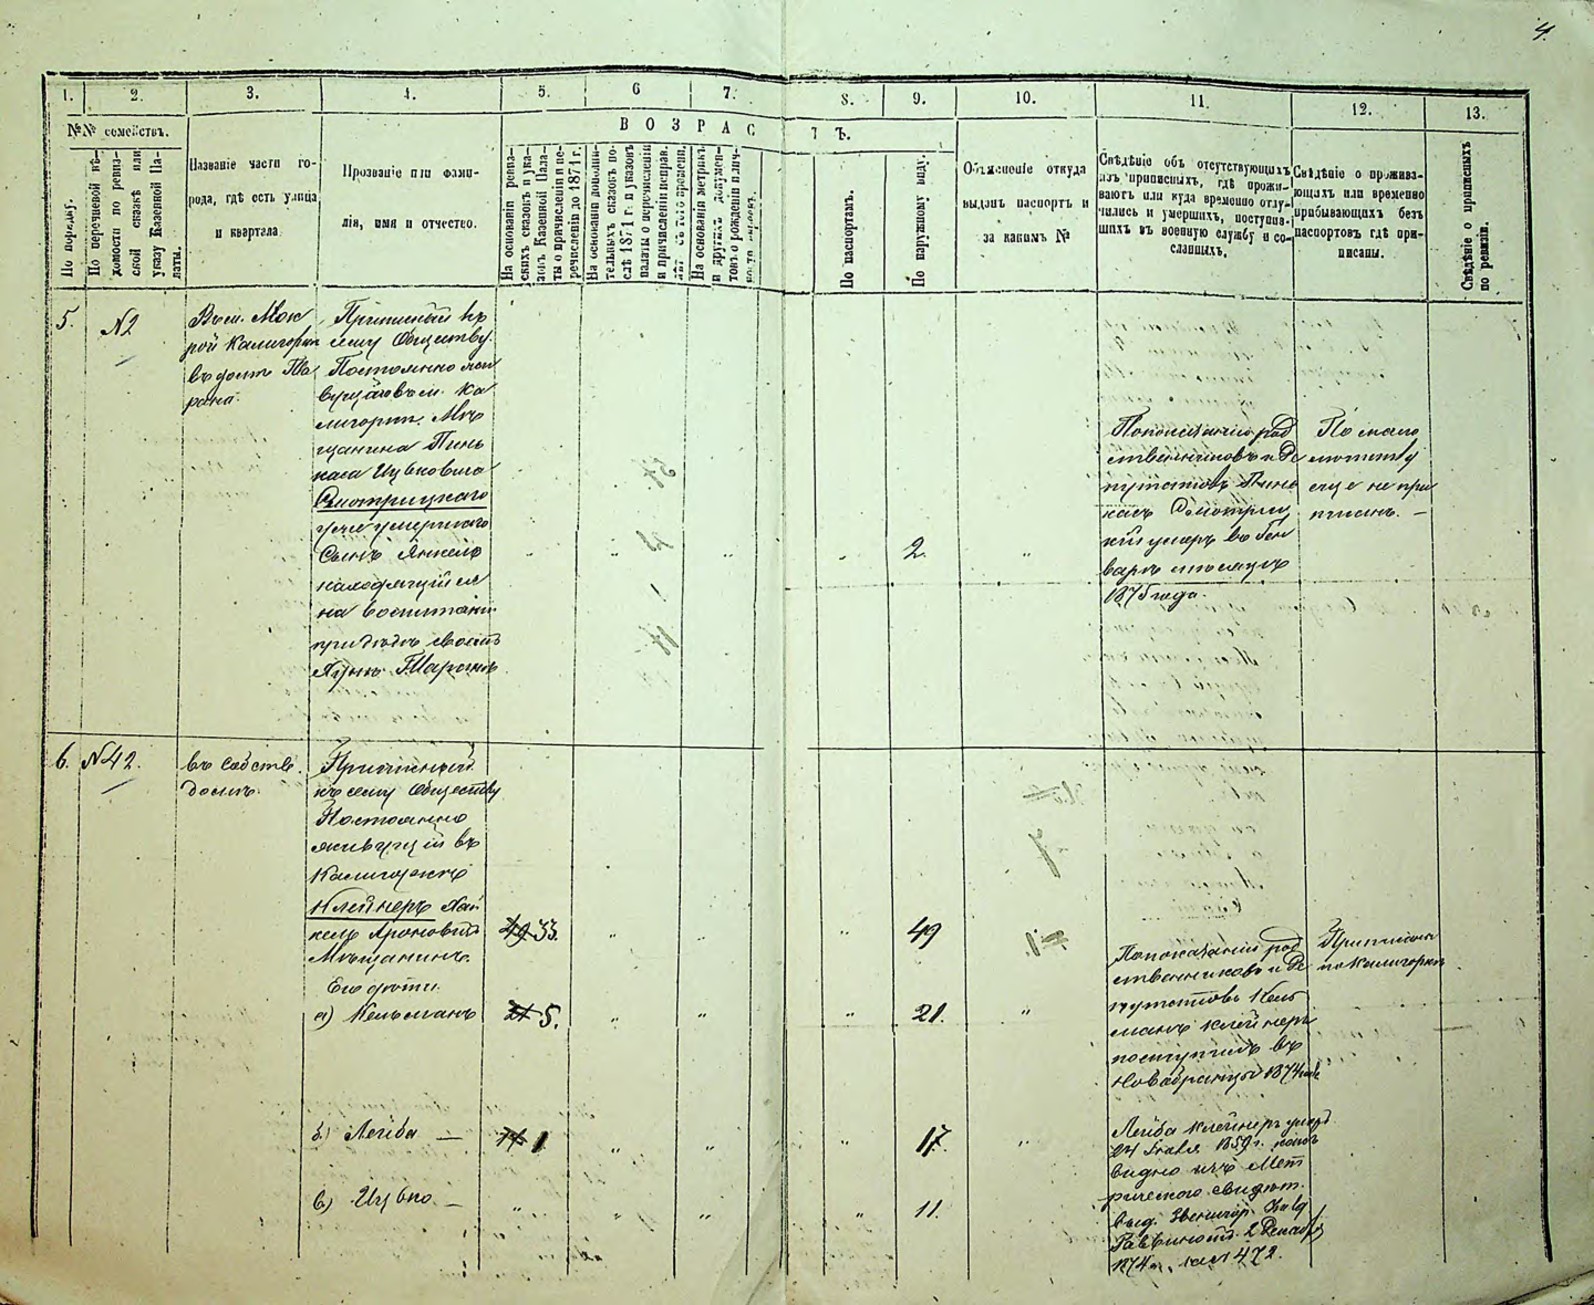 4.
1. 2. 3. 4. 5. 6 7. 8. 9. 10. 11. 12. 13.
№№ семействъ.
ВОЗРАСТЪ.
По порядку.
По перечневой вѣ-
домости по ревиз-
ской сказкѣ или
указу Казенной Па-
латы.
Названіе части го-
рода, гдѣ есть улица
и квартала
Прозваніе или фами-
лія, имя и отчество.
На основаніи ревиз-
скихъ сказокъ и ука-
зовъ Казенной Пала-
ты о причисленіи и пе-
речисленіи до 1871 г.
На основаніи дополни-
тельныхъ сказокъ по-
слѣ 1871 г. и указовъ
палаты о перечисленіи
и причисленіи
На основаніи метрик.
и другихъ докумен-
товъ о рожденіи
По паспортамъ.
По наружному виду.
Объясненіе откуда
выданъ паспортъ и
за какимъ №
Свѣдѣніе объ отсутствующихъ
изъ приписныхъ, гдѣ прожи-
ваютъ или куда временно отлу-
чились и умершихъ, поступив-
шихъ въ военную службу и со-
сланныхъ.
Свѣдѣніе о прожива-
ющихъ или временно
прибывающихъ безъ
паспортовъ гдѣ при-
писаны.
Свѣдѣніе о приписныхъ
по ревизіи.
5. №2
Въ м. Мок
рой Калигорки
въ домѣ Ша
рана.
Приписный къ
сему Обществу.
Постоянно жи
вущій въ м. Ка
лигорки. Мѣ
щанина Пинь
каса Ицковича
Смотрицкаго
уже умершаго
Сынъ Янкель
находящійся
на воспитаніи
при дядѣ своемъ
Шаранѣ
" " " " 2. "
По показанію род
ственниковъ и Де
путатовъ Пинь
касъ Смотриц
кій умеръ въ Ген
варѣ мѣсяцѣ
1875 года.
По мало
лѣтству
еще не при
писанъ. —
6. №42.
въ собств.
домѣ.
Приписный
къ сему Обществу
Постоянно
живущій въ
Калигоркѣ
Клейнеръ Хаи
кель Ароновичъ
Мѣщанинъ.
Его дѣти.
33. " " " 49
а) Кельманъ 5. " " " 21. "
По показанію род
ственниковъ и Де
путатовъ Кель
манъ Клейнеръ
поступилъ въ
Новобранцы 1874 года
Приписанъ
по Калигоркѣ
б) Лейба — 1 " " " 17. "
Лейба Клейнеръ
24 1859 г. какъ
видно изъ Мет
рическаго свидѣт.
выд. Звенигор.
Раввиномъ 2 Декабря
1874 г. за № 472.
в) Ицько — " " " " 11.